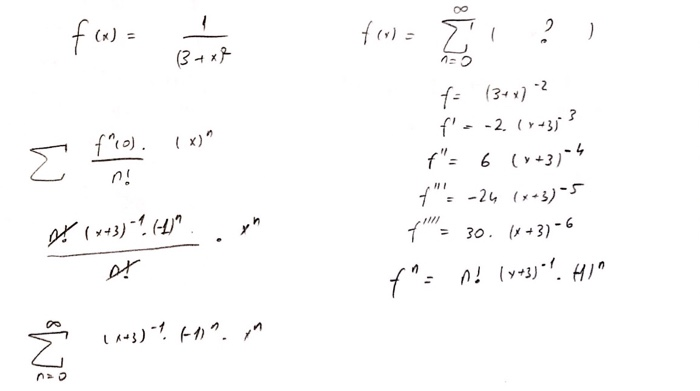 f(x) = 1 / (3+x)²
f(x) = ∑_{n=0}^{∞} ( ? )
f = (3+x)^{-2}
f' = -2. (x+3)^{-3}
f'' = 6 (x+3)^{-4}
f''' = -24 (x+3)^{-5}
f'''' = 30. (x+3)^{-6}
f^n = n! (x+3)^{-1} . (-1)^n
∑ f^n(0). / n! (x)^n
n! (x+3)^{-1} . (-1)^n / n! . x^n
∑_{n=0}^{∞} (x+3)^{-1} . (-1)^n . x^n